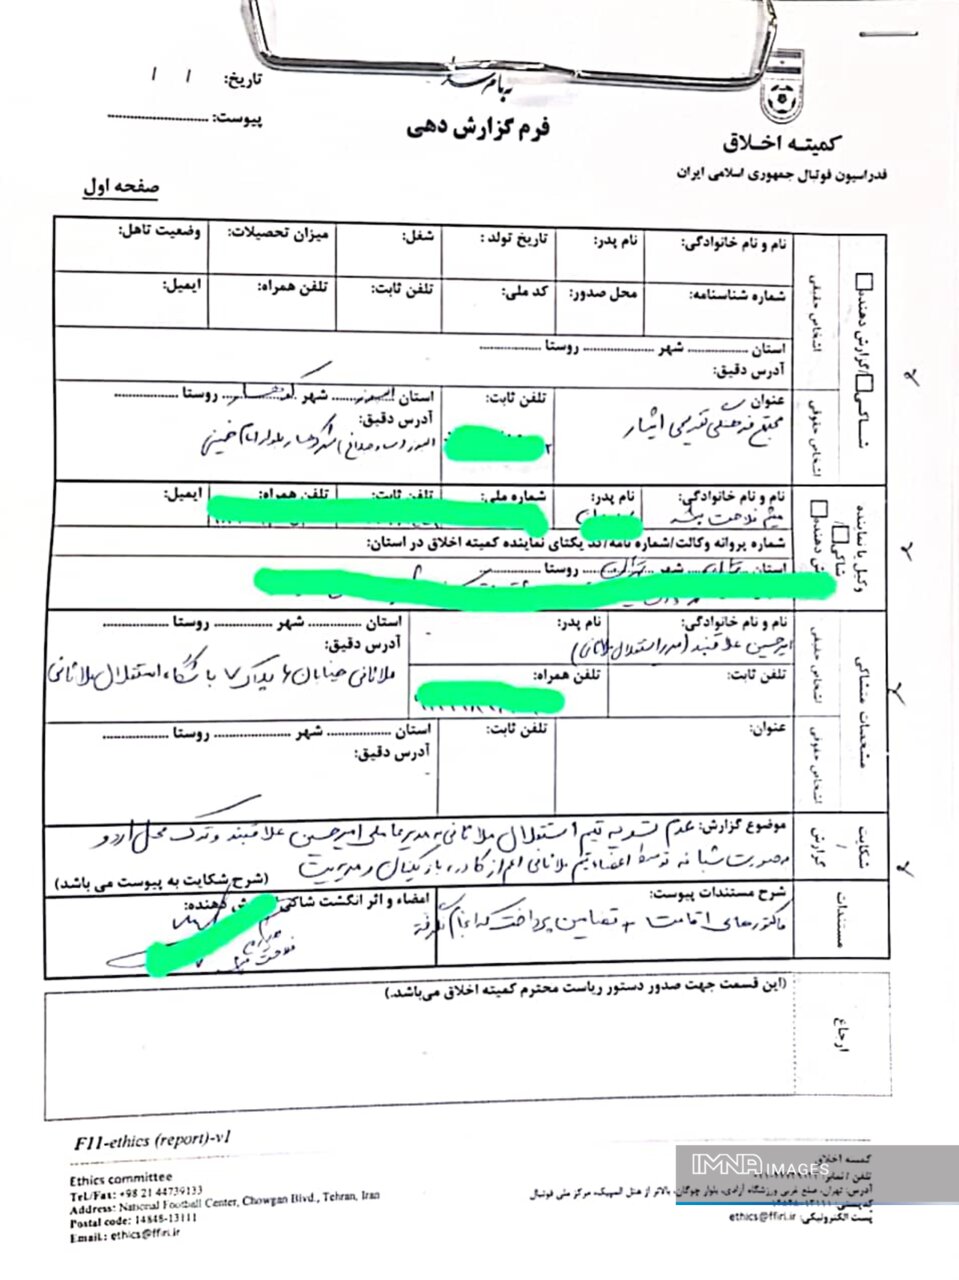 تاریخ: / /
پیوست: ....................
فرم گزارش دهی
کمیته اخلاق
فدراسیون فوتبال جمهوری اسلامی ایران
صفحه اول
شاکی/گزارش دهنده
اشخاص حقیقی
نام و نام خانوادگی: نام پدر: تاریخ تولد : شغل: میزان تحصیلات: وضعیت تاهل:
شماره شناسنامه: محل صدور: کد ملی: تلفن ثابت: تلفن همراه: ایمیل:
استان .................... شهر .................... روستا ....................
آدرس دقیق:
اشخاص حقوقی
عنوان تلفن ثابت: استان البرز شهر روستا ....................
مجتمع فرهنگی تفریحی ایثار
آدرس دقیق:
البرز بلوار امام خمینی
وکیل یا نماینده شاکی/ دهنده
نام و نام خانوادگی: نام پدر: شماره ملی: تلفن ثابت: تلفن همراه: ایمیل:
میثم فلاحت
شماره پروانه وکالت/شماره نامه/کد یکتای نماینده کمیته اخلاق در استان:
استان شهر تهران روستا ....................
مشخصات متشاکی
اشخاص حقیقی
نام و نام خانوادگی: نام پدر: استان .................... شهر .................... روستا ....................
امیرحسین علاقبند (مدیر استقلال ملاثانی)
آدرس دقیق:
ملاثانی خیابان ۶ پلاک ۷ باشگاه استقلال ملاثانی
تلفن ثابت: تلفن همراه:
اشخاص حقوقی
عنوان: تلفن ثابت: استان .................... شهر .................... روستا ....................
آدرس دقیق:
شکایت / گزارش
موضوع گزارش: عدم تسویه تیم استقلال ملاثانی به مدیرعاملی امیرحسین علاقبند و ترک محل اردو
بصورت شبانه توسط اعضاء تیم ملاثانی اعم از کادر، بازیکنان و مدیریت
(شرح شکایت به پیوست می باشد)
مستندات
شرح مستندات پیوست: امضاء و اثر انگشت شاکی دهنده:
فاکتورهای اقامت و تضامین پرداخت که انجام نگرفته
فلاحت
ارجاع
(این قسمت جهت صدور دستور ریاست محترم کمیته اخلاق می‌باشد.)
F11-ethics (report)-v1
Ethics committee
Tel/Fax: +98 21 44739133
Address: National Football Center, Chowgan Blvd., Tehran, Iran
Postal code: 14848-13111
Email.: ethics@ffiri.ir
کمیته اخلاق
تلفن / نمابر:
آدرس: تهران، ضلع غربی ورزشگاه آزادی، بلوار چوگان، بالاتر از هتل المپیک، مرکز ملی فوتبال
کدپستی:
پست الکترونیکی: ethics@ffiri.ir
IMNA IMAGES